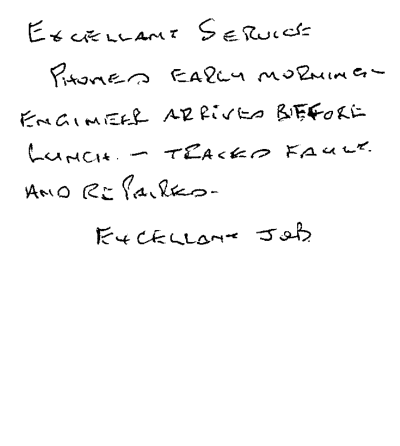 EXCELLANT SERVICE
PHONED EARLY MORNING -
ENGINEER ARRIVED BEFORE
LUNCH. - TRACED FAULT.
AND REPAIRED -
EXCELLANT JOB